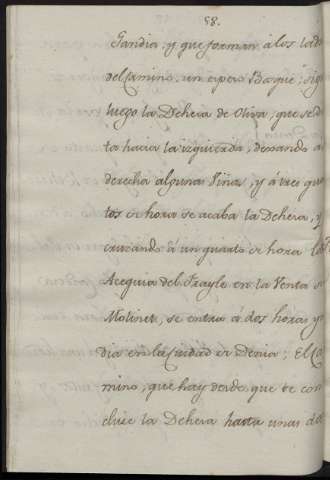 58.
Gandia, y que forman á los lado
del camino, un espero Bosque; sig
luego la Dehesa de Oliva, que se d
ta hacia la izquierda, dexando a
derecha alguna Viña, y á tres qua
tos de hora se acaba la Dehesa, y
cruzando á un quarto de hora la
Acequia del Frayle en la Venta
Molinet, se entra á dos horas y
dia en la Ciudad de Denia; El Ca
mino, que hay desde que se con
cluie la Dehesa hasta unas do